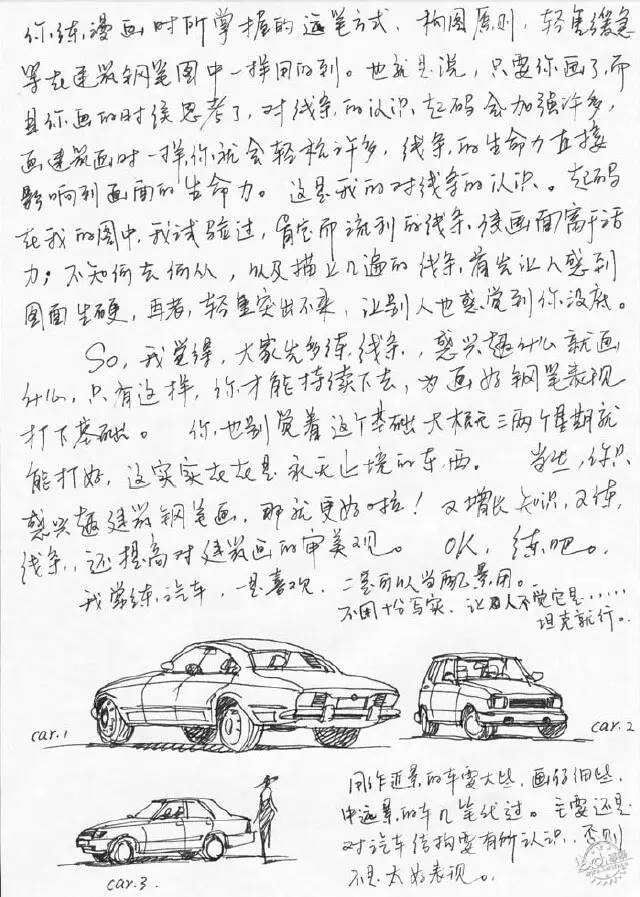 你练漫画时所掌握的运笔方式、构图原则,轻重缓急
等在建筑钢笔图中一样用的到。也就是说,只要你画了,而
且你画的时候思考了,对线条的认识起码会加强许多,
画建筑画时一样你就会轻松许多,线条的生命力直接
影响到画面的生命力。这是我的对线条的认识。起码
在我的图中,我试验过,肯定而流利的线条,使画面富于活
力;不知何去何从,以及描上几遍的线条,首先让人感到
图面生硬,再者,轻重突出不来,让别人也感觉到你没底。
So,我觉得,大家先多练线条,感兴趣什么就画
什么,只有这样,你才能持续下去,为画好钢笔表现
打下基础。你也别觉着这个基础大概三两个星期就
能打好,这实实在在是永无止境的东西。当然,你只
感兴趣建筑钢笔画,那就更好啦!又增长知识,又练
线条,还提高对建筑画的审美观。OK,练吧。
我常练汽车,一是喜欢,二是可以当配景用。
不用十分写实,让人不觉它是……
坦克就行。
car.1
car.2
用作近景的车要大些,画仔细些,
中远景的车几笔代过。主要还是
对汽车结构要有所认识,否则
不是太好表现。
car.3.